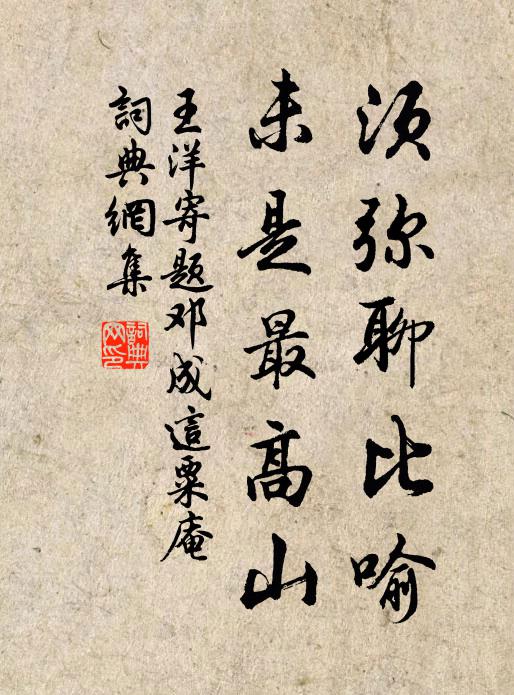 须弥聊比喻
未是最高山
王洋寄题邓成這粟庵
詞典網集
詞典网印